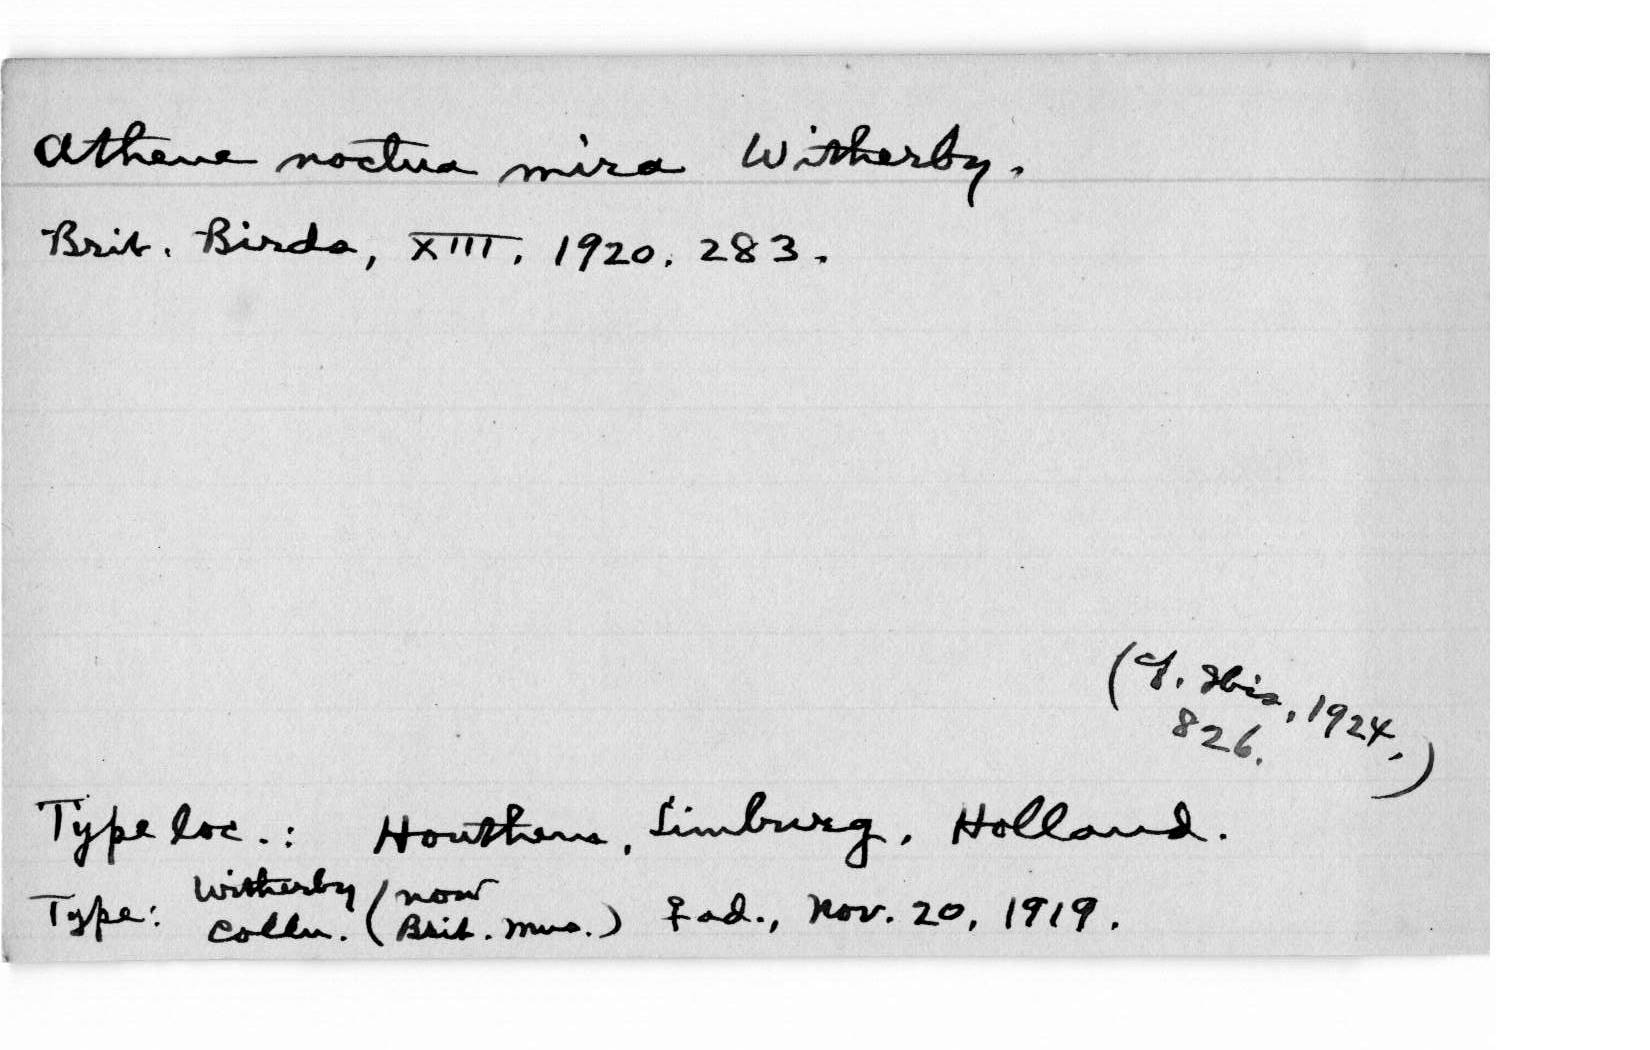 Athene noctua mira Witherby.
Brit. Birds, XIII, 1920, 283.
(Cf. Ibis, 1924,
826.)
Type loc.: Houthem, Limburg, Holland.
Type: Witherby Colln. (now Brit. Mus.) ♀ ad., Nov. 20, 1919.